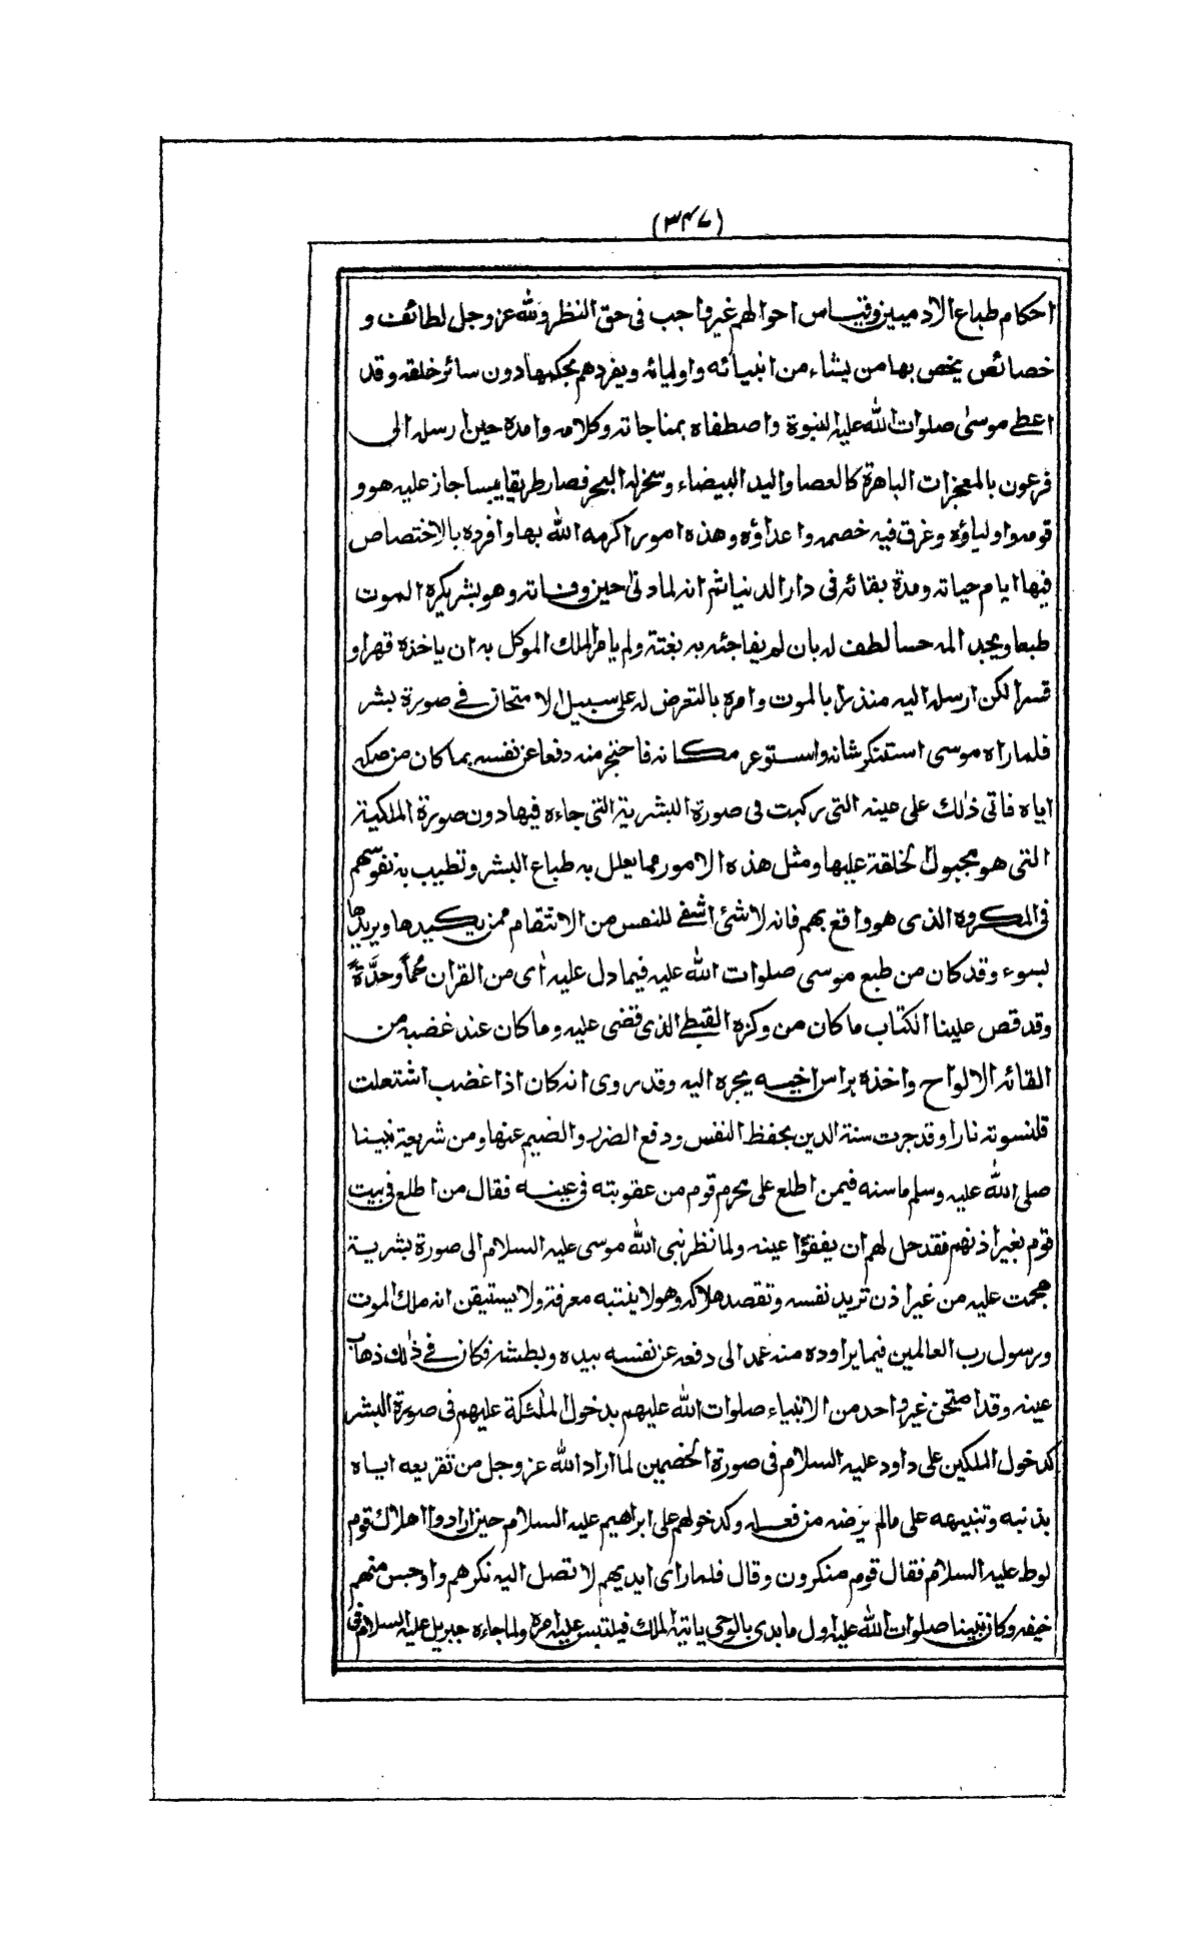 (٣٤٧)
احكام طباع الادميين وقياس احوالهم غير واجب فى حق النظر ولله عز وجل لطائف و
خصائص يخص بها من يشاء من انبيائه واوليائه ويفردهم بحكمها دون سائر خلقه وقد
اعطى موسى صلوات الله عليه النبوة واصطفاه بمناجاته وكلامه وامده حين ارسله الى
فرعون بالمعجزات الباهرة كالعصا واليد البيضاء وسخر له البحر فصار طريقا يبسا جاز عليه هو و
قومه واولياؤه وغرق فيه خصمه واعداؤه وهذه امور اكرمه الله بها وافرده بالاختصاص
فيها ايام حياته ومدة بقائه فى دار الدنيا ثم انه لما دنى حين وفاته وهو بشر يكره الموت
طبعا ويجد المه حسا لطف له بان لم يفاجئه به بغتة ولم يامر الملك الموكل به ان ياخذه قهرا و
قسرا لكن ارسله اليه منذرا بالموت وامره بالتعرض له على سبيل الامتحان فى صورة بشر
فلما راه موسى استنكر شانه واستوعر مكانه فاحتجز منه دفعا عن نفسه بما كان من صكه
اياه فاتى ذلك على عينه التى ركبت فى صورة البشرية التى جاءه فيها دون صورة الملكية
التى هو مجبول الخلقة عليها ومثل هذه الامور مما يعلل به طباع البشر وتطيب به نفوسهم
فى المكروه الذى هو واقع بهم فانه لا شئ اشفى للنفس من الانتقام ممن يكيدها ويريدها
بسوء وقد كان من طبع موسى صلوات الله عليه فيما دل عليه اى من القران حمأ وحدَّة
وقد قص علينا الكتاب ما كان من وكزه القبطى الذى قضى عليه وما كان عند غضبه من
القائه الالواح واخذه براس اخيه يجره اليه وقد روى انه كان اذا غضب اشتعلت
قلنسوته نارا وقد جرت سنة الدين بحفظ النفس ودفع الضرر والضيم عنها ومن شريعة نبينا
صلى الله عليه وسلم ما سنه فيمن اطلع على محرم قوم من عقوبته فى عينه فقال من اطلع فى بيت
قوم بغير اذنهم فقد حل لهم ان يفقؤا عينه ولما نظر نبى الله موسى عليه السلام الى صورة بشرية
هجمت عليه من غير اذن تريد نفسه وتقصد هلاكه وهو لا يثبته معرفة ولا يستيقن انه ملك الموت
ورسول رب العالمين فيما يراوده منه عمد الى دفعه عن نفسه بيده وبطشه فكان فى ذلك ذهاب
عينه وقد امتحن غير واحد من الانبياء صلوات الله عليهم بدخول الملئكة عليهم فى صورة البشر
كدخول الملكين على داود عليه السلام فى صورة الخصمين لما اراد الله عز وجل من تقريعه اياه
بذنبه وتنبيهه على مالم يرضه من فعله وكدخولهم على ابراهيم عليه السلام حين ارادوا اهلاك قوم
لوط عليه السلام فقال قوم منكرون وقال فلما راى ايديهم لا تصل اليه نكرهم واوجس منهم
خيفه وكان نبينا صلوات الله عليه اول ما بدى بالوحى ياتيه الملك فيلتبس عليه امره ولما جاءه جبريل عليه السلام فى